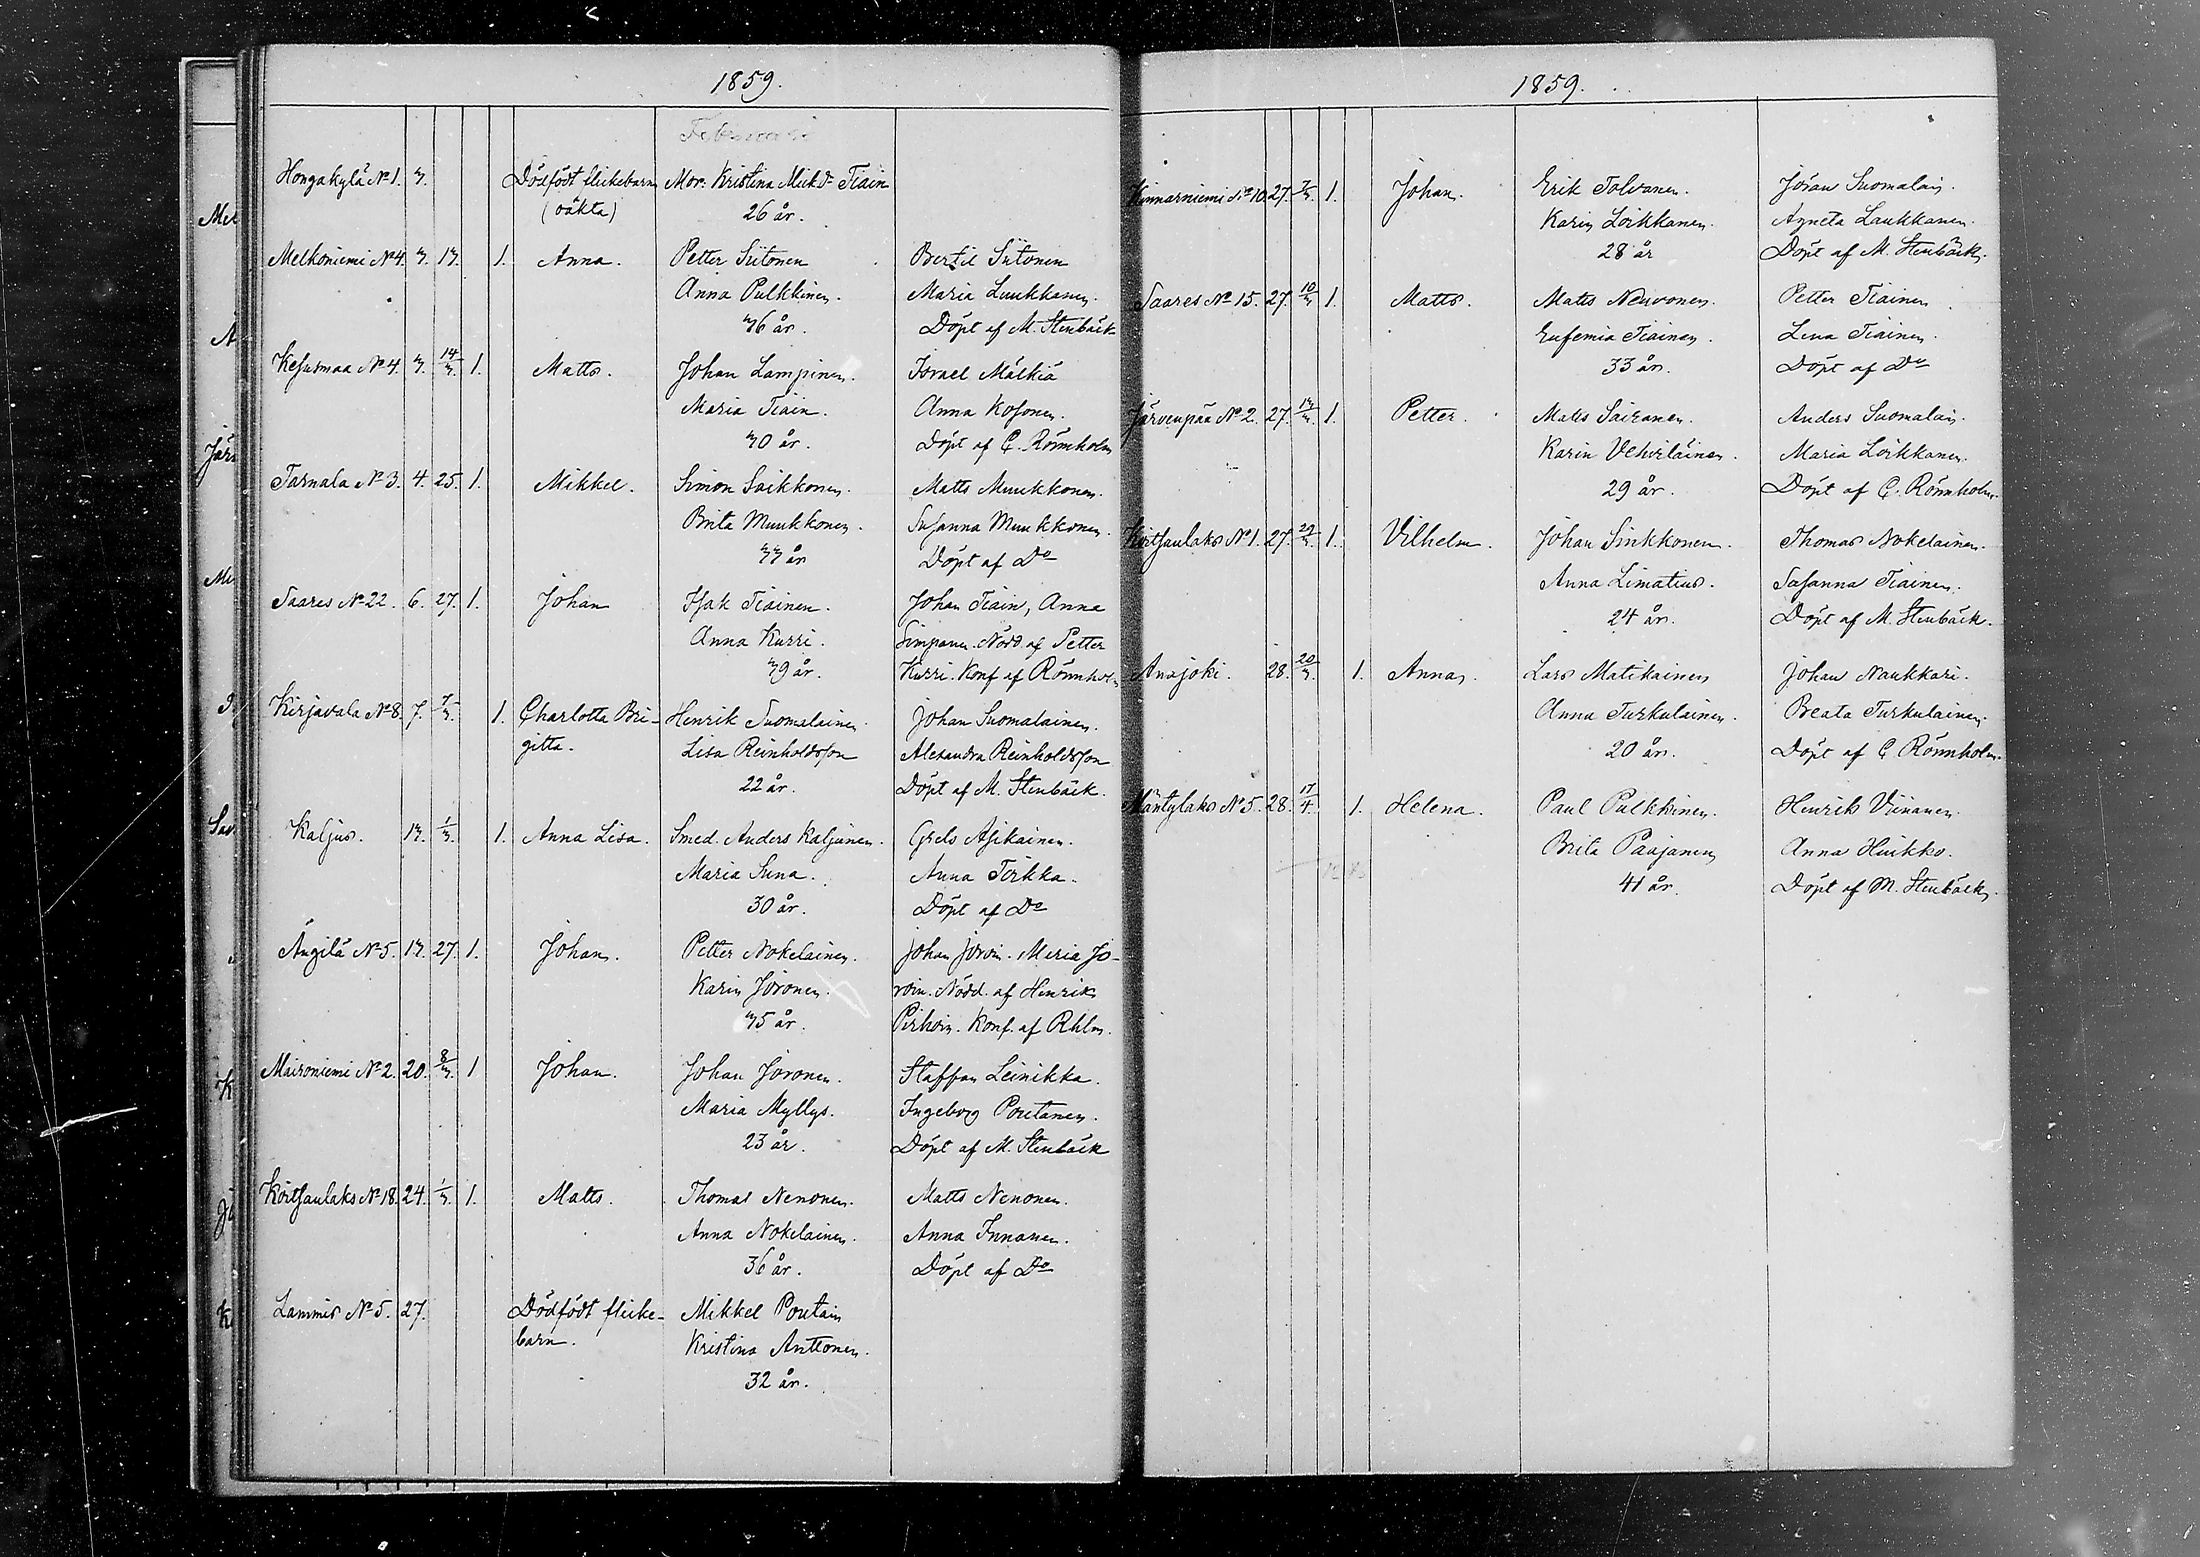 1859.
Februari
Hongakylä No 1. 3. Dödfödt flickebarn Mor: Kristina Mickd:r Tiain
(oäkta) 26 år.
Melkoniemi No 4. 3. 13. 1. Anna. Petter Siitonen Bertil Siitonen
Anna Pulkkinen. Maria Luukkanen.
36 år. Döpt af M. Stenbäck
Kesusmaa No 4. 3. 14/3. 1. Matts. Johan Lampinen. Israel Mälkiä
Maria Tiain. Anna Kosonen.
30 år. Döpt af C. Rönnholm
Tarnala No 3. 4. 25. 1. Mikkel. Simon Saikkonen. Matts Muukkonen.
Brita Muukkonen. Susanna Muukkonen.
33 år Döpt af Do
Saares No 22. 6. 27. 1. Johan Isak Tiainen. Johan Tiain, Anna
Anna Kurri. Simpanen. Nödd. af Petter
39 år. Kurri. Konf af Rönnholm
Kirjavala No 8. 7. 7/3. 1. Charlotta Bri- Henrik Suomalainen. Johan Suomalainen.
gitta. Lisa Reinholdsson Alexandra Reinholdsson
22 år. Döpt af M. Stenbäck.
Kaljus. 13. 1/3. 1. Anna Lisa. Smed. Anders Kaljunen. Grels Asikainen.
Maria Suna. Anna Torkka.
30 år. Döpt af Do
Ängilä No 5. 13. 27. 1. Johan. Petter Nokelainen. Johan Joroin. Maria Jo-
Karin Joronen. roin. Nödd. af Henrik
35 år. Pirhoin. Konf. af Rhlm.
Maironiemi No 2. 20. 8/3. 1 Johan. Johan Joronen. Staffan Leinikka.
Maria Myllys. Ingeborg Poutanen.
23 år. Döpt af M. Stenbäck
Kortsanlaks No 18. 24. 1/3. 1. Matts. Thomas Nenonen. Matts Nenonen.
Anna Nokelainen. Anna Innanen.
36 år. Döpt af Do
Lammis No 5. 27. Dödfödt flicke- Mikkel Poutain
barn. Kristina Anttonen.
32 år.
1859.
Kinnarniemi No 10. 27. 7/3. 1. Johan. Erik Tolvanen. Jöran Suomalain.
Karin Loikkanen. Agneta Laukkanen.
28 år Döpt af M. Stenbäck.
Saares No 15. 27. 10/3 1. Matts. Matts Neuvonen. Petter Tiainen
Eufemia Tiainen. Lena Tiainen.
33 år. Döpt af Do
Järvenpää No 2. 27. 13/3. 1. Petter. Matts Sairanen. Anders Suomalain.
Karin Vehviläinen. Maria Loikkanen.
29 år. Döpt af C. Rönnholm.
Kortsanlaks No 1. 27. 29/3. 1. Vilhelm. Johan Sinkkonen. Thomas Nokelainen.
Anna Limatius. Susanna Tiainen.
24 år. Döpt af M. Stenbäck.
Anajoki. 28. 20/3. 1. Anna. Lars Matikainen Johan Naukkari.
Anna Turkulainen. Beata Turkulainen.
20 år. Döpt af C Rönnholm.
Mäntylaks No 5. 28. 17/4. 1. Helena. Paul Pulkkinen. Henrik Viinanen.
Brita Paajanen Anna Huikko.
41 år. Döpt af M. Stenbäck.